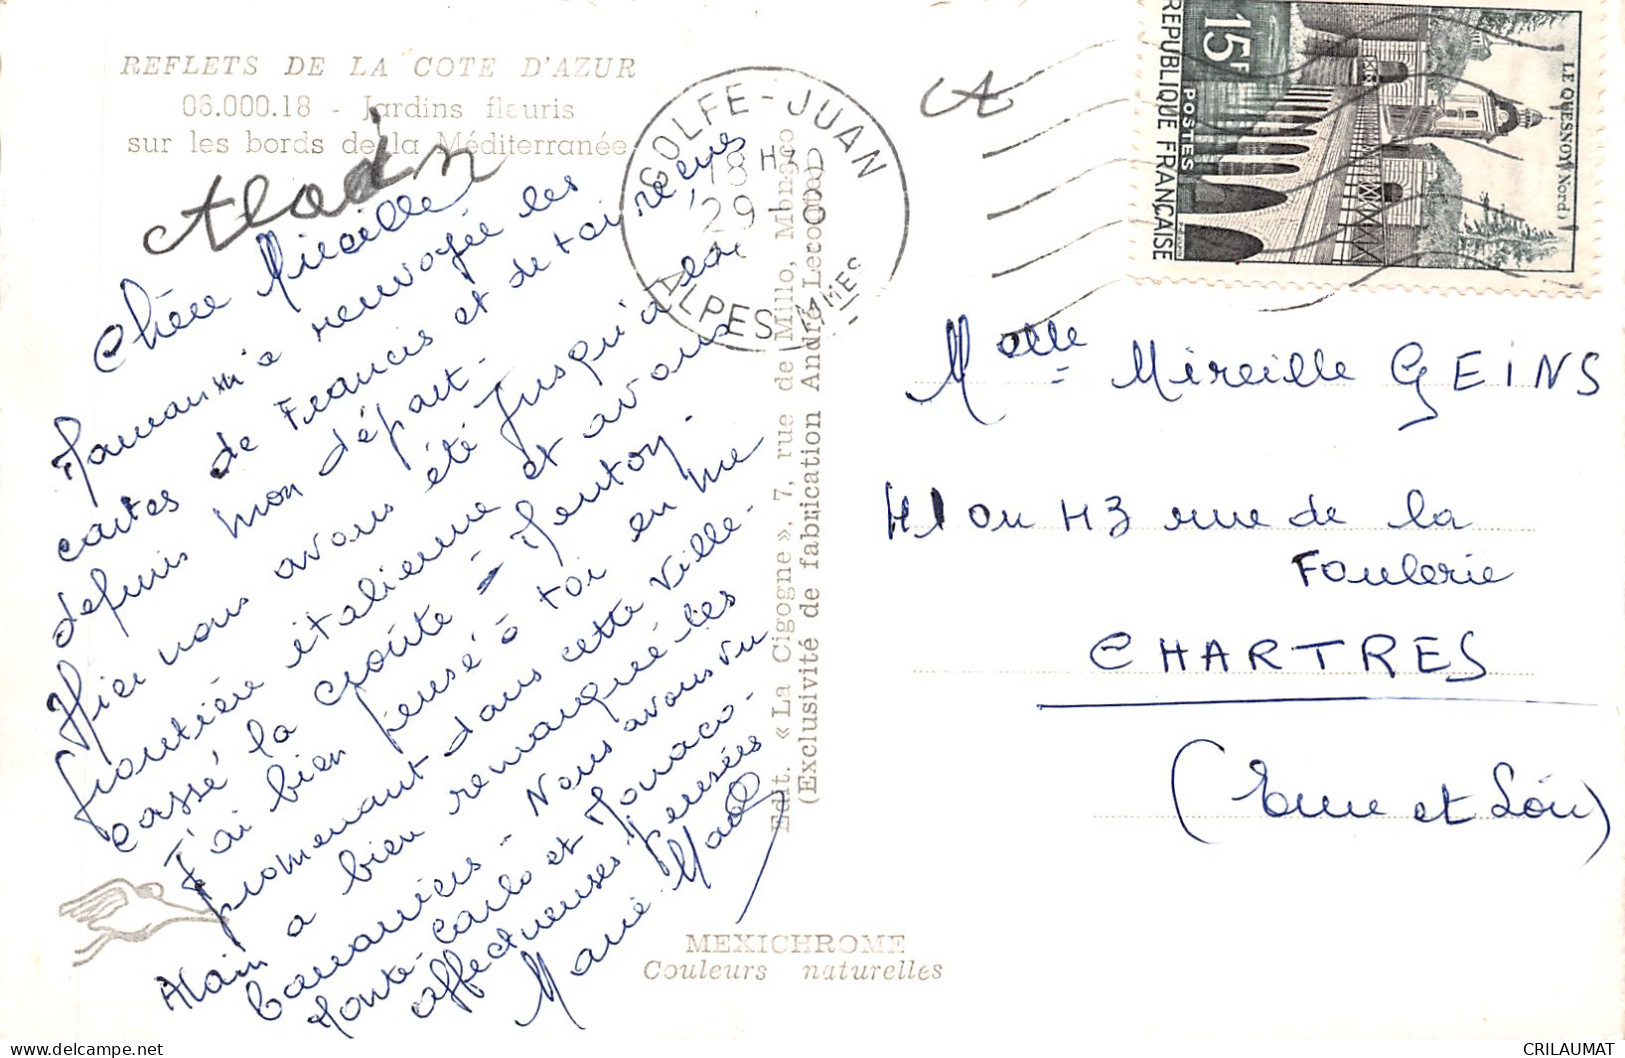 REFLETS DE LA COTE D'AZUR
06.000.18 - Jardins fleuris
sur les bords de la Méditerranée
Aladin
Chère Mireille
Maman m'a renvoyée les
cartes de Francis et de toi reçues
depuis mon départ.
Hier nous avons été jusqu'à la
frontière italienne et avons
cassé la croûte à Menton.
J'ai bien pensé à toi en me
promenant dans cette ville.
Alain a bien remarqué les
bananiers. Nous avons vu
Monte-Carlo et Monaco.
affectueuses pensées
Marie Mad
Edit. « La Cigogne », 7, rue de Millo, Monaco
(Exclusivité de fabrication André Leconte)
MEXICHROME
Couleurs naturelles
GOLFE-JUAN
18 H3
29
ALPES MMES
15F
POSTES
REPUBLIQUE FRANÇAISE
LE QUESNOY (Nord)
Melle Mireille GEINS
H1 ou H3 rue de la
Foulerie
CHARTRES
(Eure et Loir)
CRILAUMAT